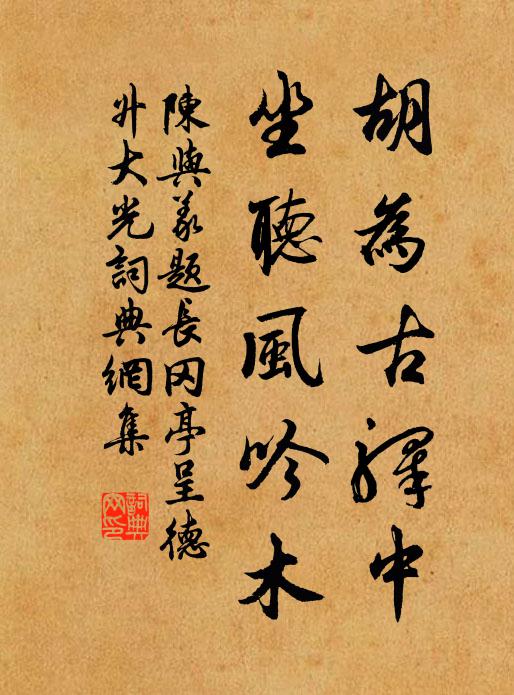 胡為古驛中
坐聽風吟木
陳與義題長岡亭呈德
升大光詞典網集
詞典
网印